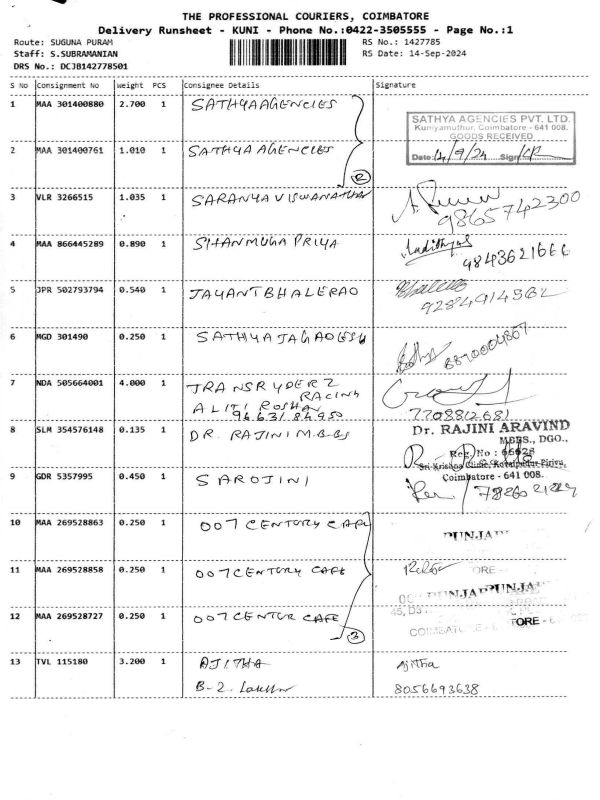 THE PROFESSIONAL COURIERS, COIMBATORE
Delivery Runsheet - KUNI - Phone No.:0422-3505555 - Page No.:1
Route: SUGUNA PURAM
Staff: S.SUBRAMANIAN
DRS No.: DCJB142778501
RS No.: 1427785
RS Date: 14-Sep-2024
S No Consignment No Weight PCS Consignee Details Signature
1 MAA 301400880 2.700 1 SATHYA AGENCIES
SATHYA AGENCIES PVT. LTD.
Kuniyamuthur, Coimbatore - 641 008.
GOODS RECEIVED
2 MAA 301400761 1.010 1 SATHYA AGENCIES
Date: 14/9/24 Sign
2
3 VLR 3266515 1.035 1 SARANYA VISWANATHAN
9865742300
4 MAA 866445289 0.890 1 SHANMUGA PRIYA
5 JPR 502793794 0.540 1 JAYANT BHALERAO
6 MGD 301490 0.250 1 SATHYA JAGADESH
8870004867
7 NDA 505664001 4.000 1 TRANSRYDERZ
RACING
ALITI ROSHAN
7708812681
8 SLM 354576148 0.135 1 DR. RAJINI M.B.BS
Dr. RAJINI ARAVIND
MBBS., DGO.,
Reg. No :
Sri Krishna Clinic, Kovaipudur Pirivu,
Coimbatore - 641 008.
9 GDR 5357995 0.450 1 SAROJINI
10 MAA 269528863 0.250 1 007 CENTURY CAFE
PUNJAB
11 MAA 269528858 0.250 1 007 CENTURY CAFE
ORE -
PUNJAB PUNJAB
12 MAA 269528727 0.250 1 007 CENTUR CAFE
COIMBATORE - TORE -
3
13 TVL 115180 3.200 1 AJITHA
Ajitha
B-2.
8056693638